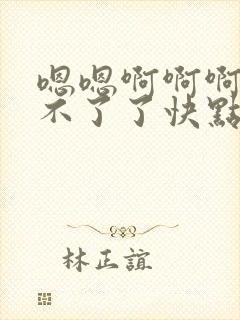 嗯嗯啊啊啊
不了了快點
林正誼